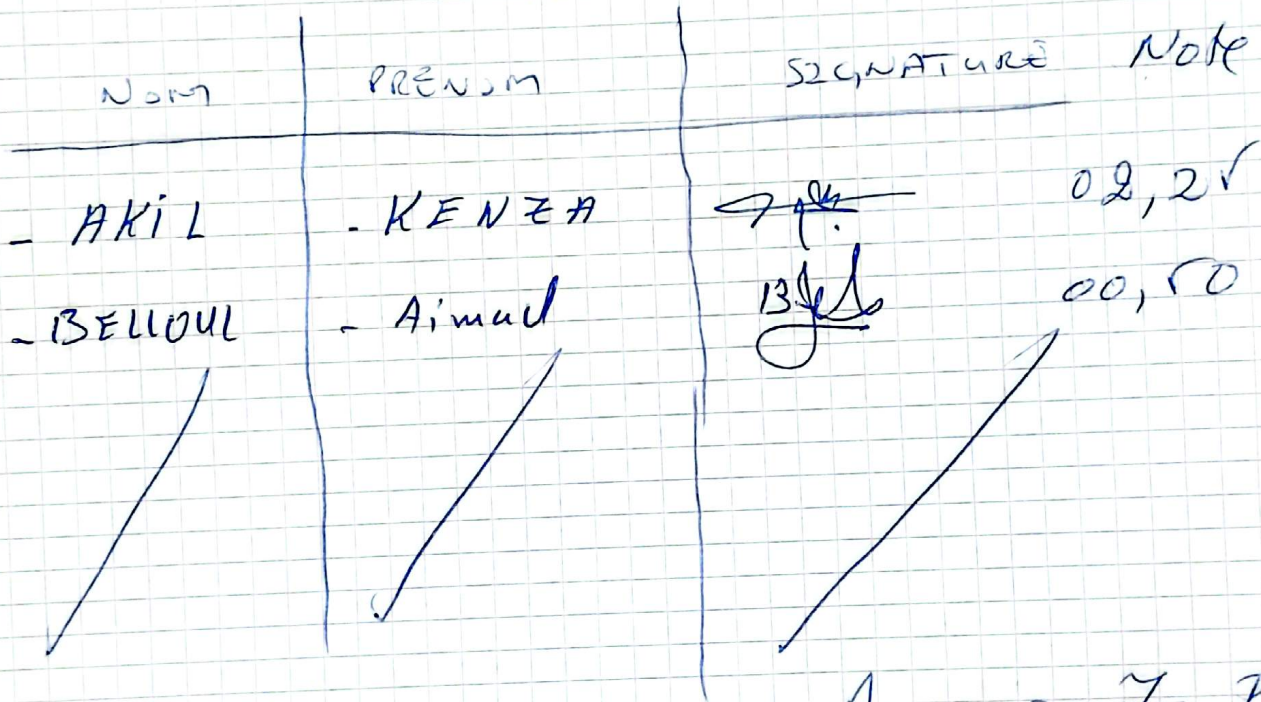 NOM PRENOM SIGNATURE Note
- AKiL - KENZA 02,25
- BELLOUL - Aimad 00,50